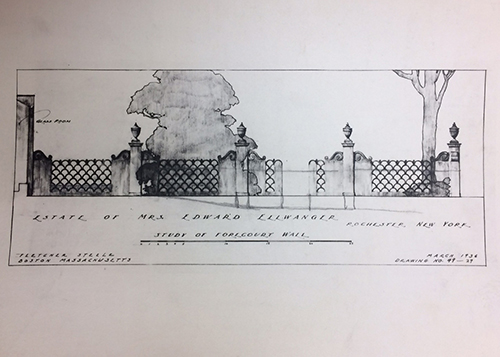 GLASS ROOM
ESTATE OF MRS. EDWARD ELLWANGER
ROCHESTER, NEW YORK
STUDY OF FORECOURT WALL
FLETCHER STEELE
BOSTON MASSACHUSETTS
MARCH 1936
DRAWING NO. 49-39